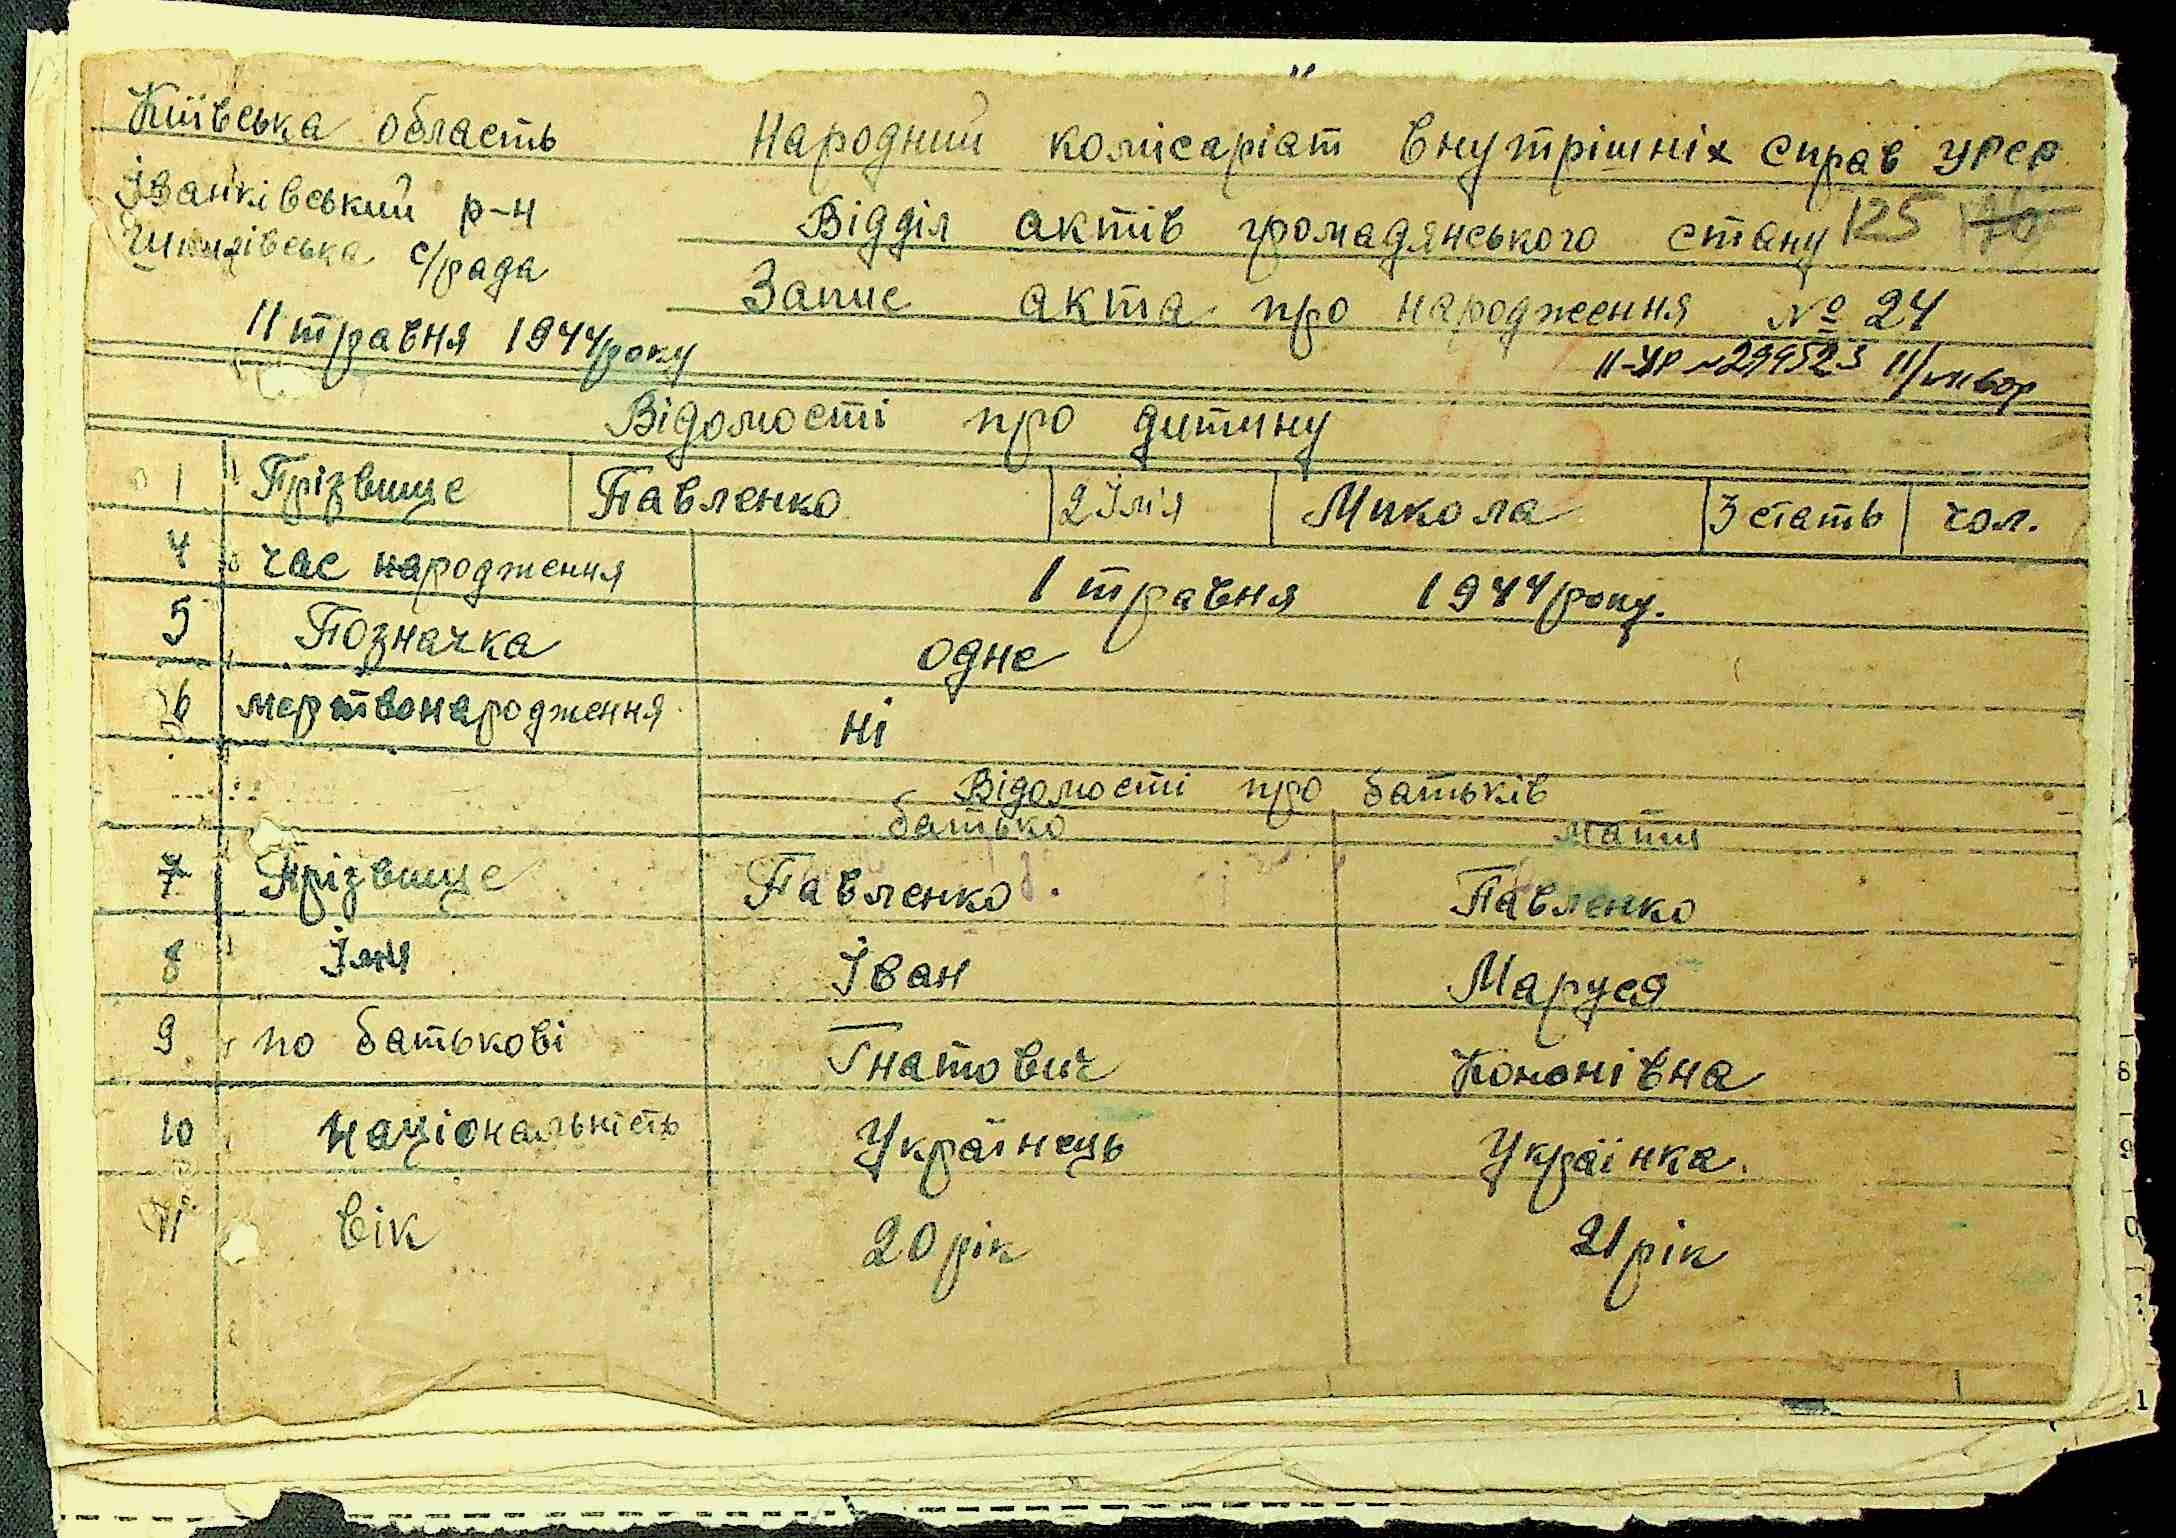 Київська область
Народний комісаріат внутрішніх справ УРСР
Іванківський р-н
Відділ актів громадянського стану 125
с/рада
Запис акта про народження № 24
11 травня 1944 року
II-УР № 299523
Відомості про дитину
1 Прізвище Павленко 2 Ім'я Микола 3 стать чол.
4 час народження 1 травня 1944 року.
5 Позначка одне
6 мертвонародження ні
Відомості про батьків
батько мати
7 Прізвище Павленко Павленко
8 Імя Іван Маруся
9 по батькові Гнатович Кононівна
10 національність Українець Українка.
11 вік 20 рік 21 рік